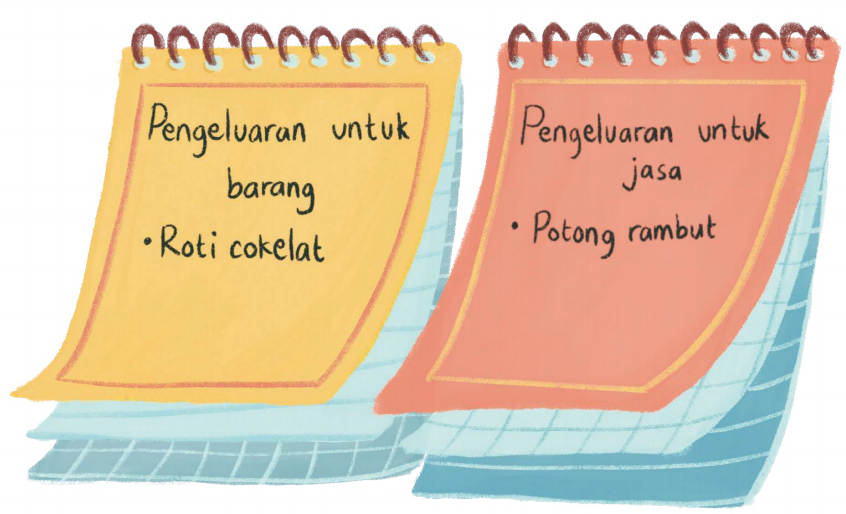 Pengeluaran untuk
barang
• Roti cokelat
Pengeluaran untuk
jasa
• Potong rambut